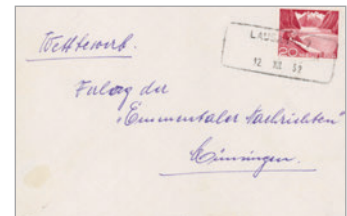 Wettbewerb.
LAUS
12. XII. 51
20
Verlag der
"Emmentaler Nachrichten"
Münsingen.